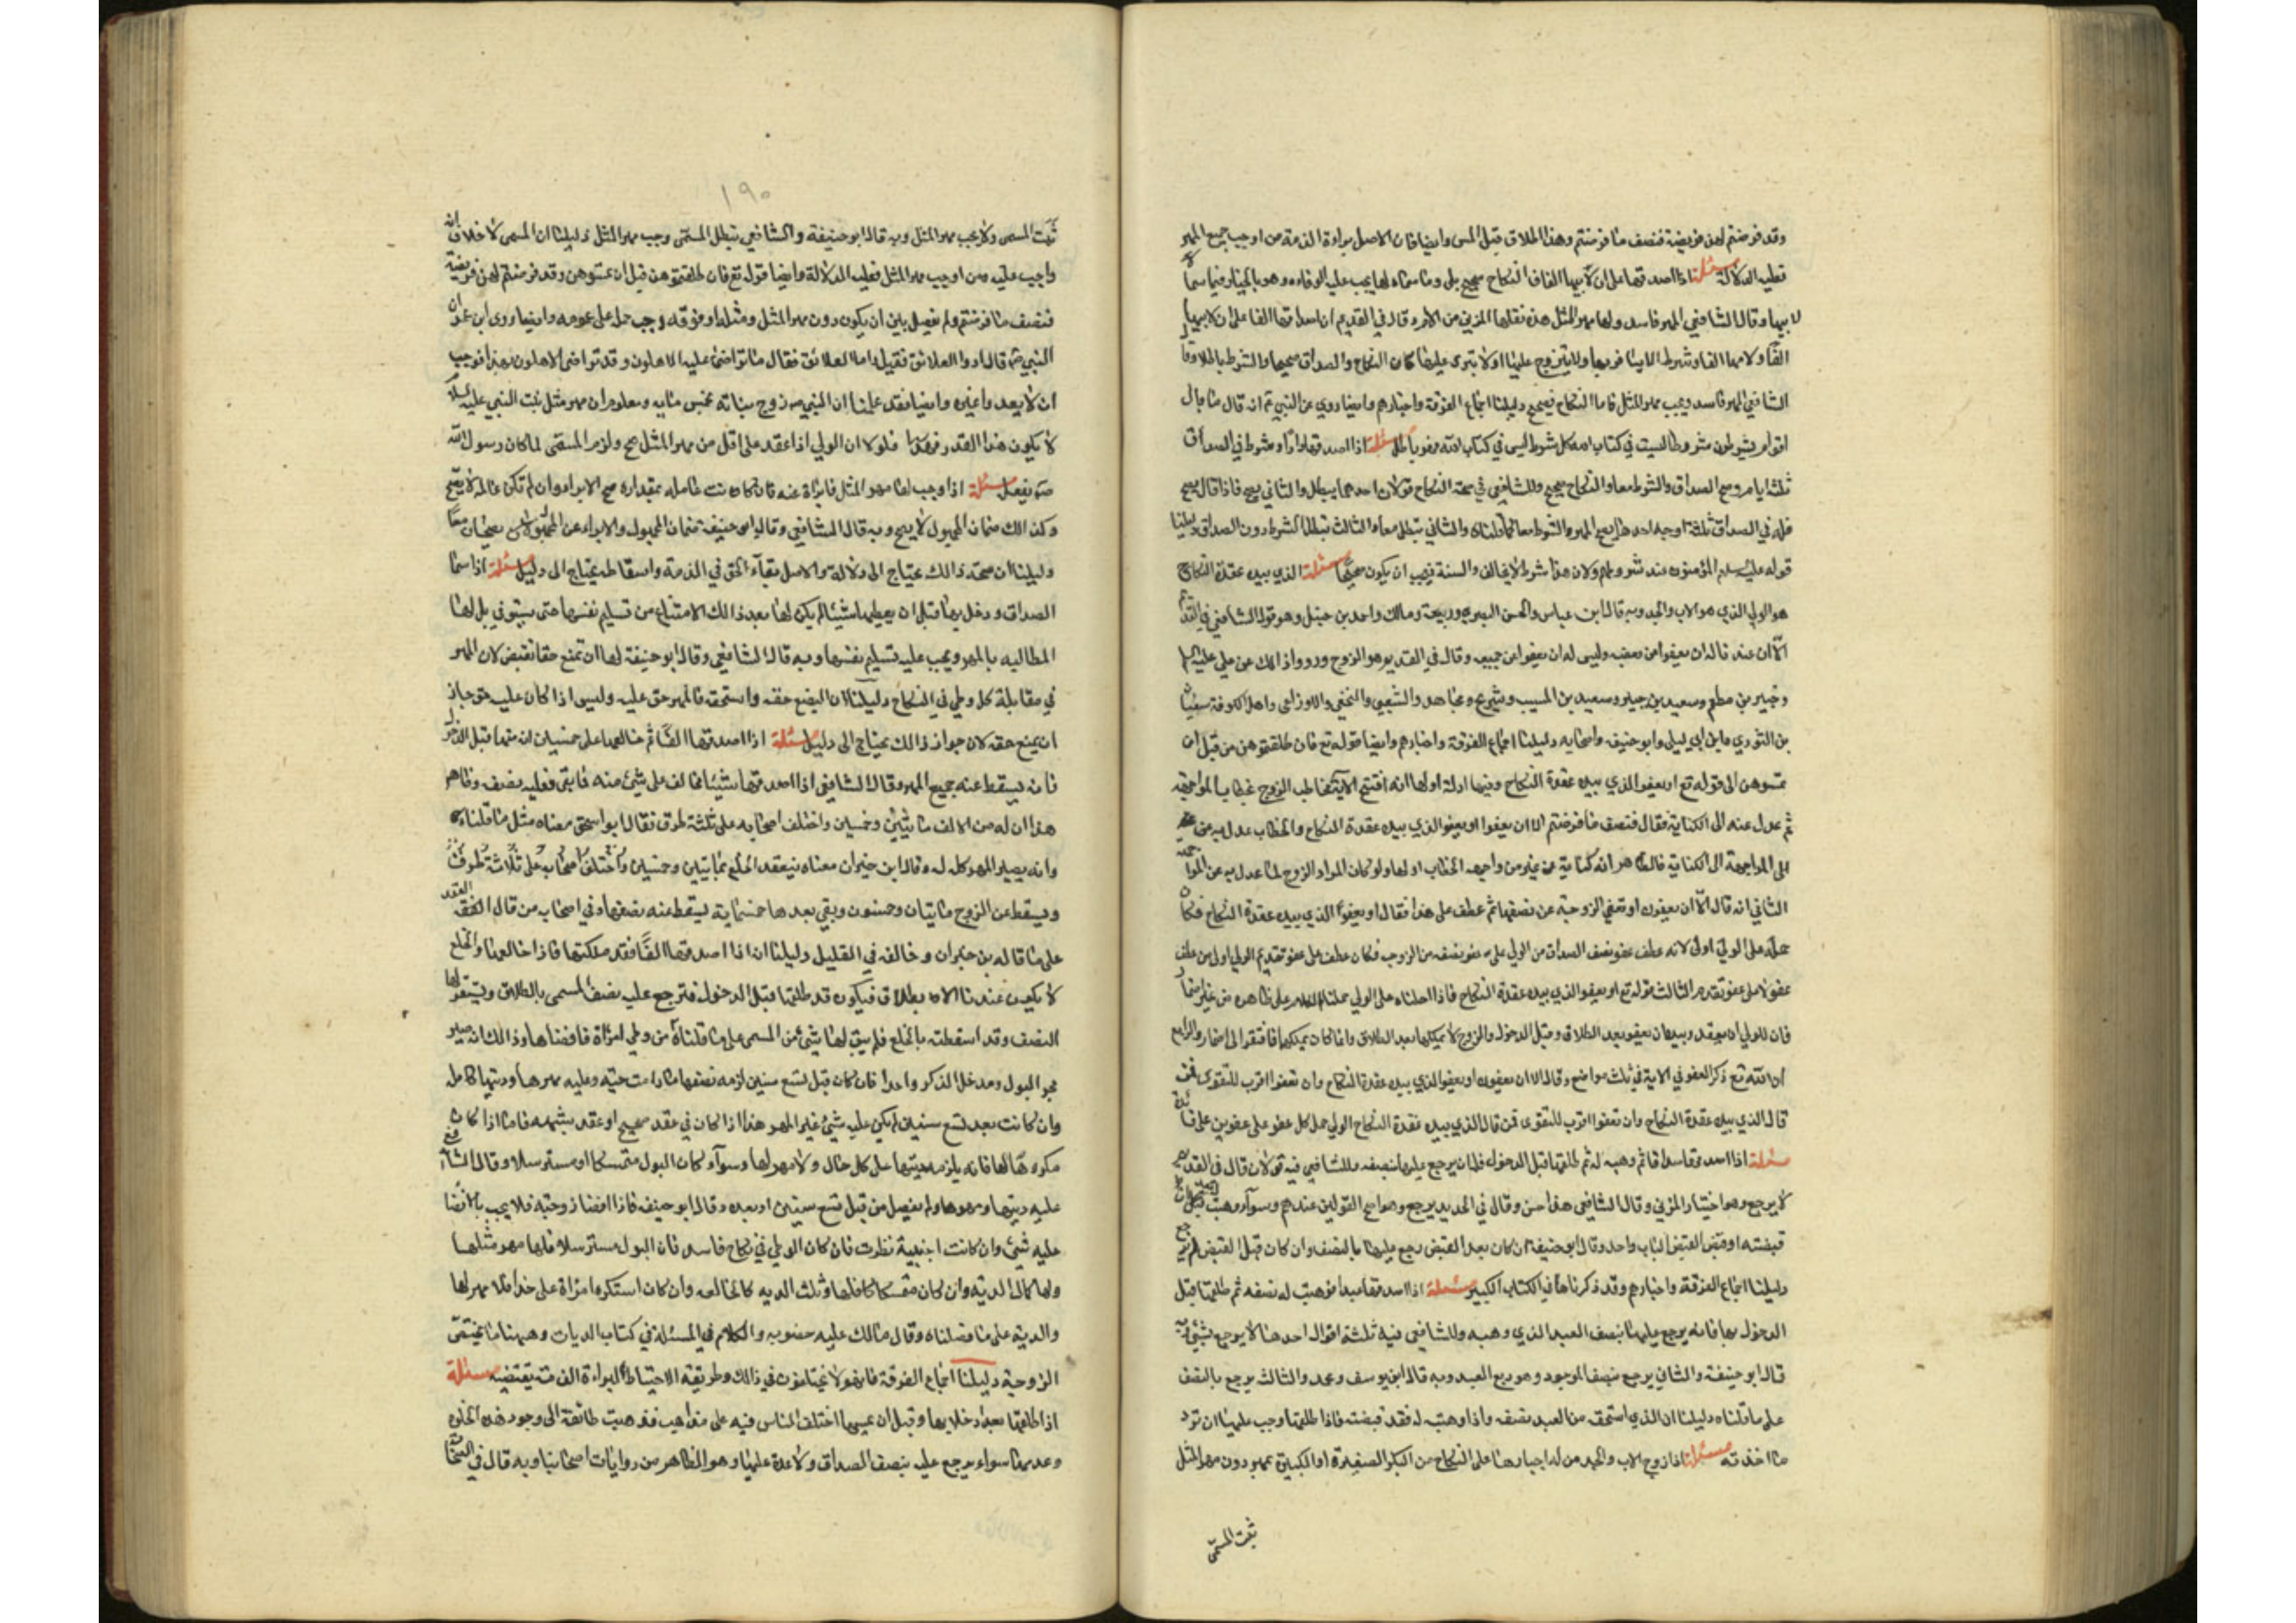 وقد فرضتم لهن فريضة فنصف ما فرضتم وهذا الطلاق قبل المس وايضا فان الاصل براءة الذمة من اوجب جميع المهر
فعليه الدلالة مسئلة اذا اصدقها على ان لابيها الفا فالنكاح صحيح بلى وما سماه لها يجب عليه الوفاء به وهو بالخيار فيما سماه
لابيها وقال الشافعي المهر فاسد ولها مهر المثل هذه نقلها المزني من الام وقال في القديم ان اصدقها الفا على ان لابيها
الفا ولامها الفا وشرط ولا يتزوج عليها او لا يتسرى عليها كان النكاح والصداق صحيحا والشرط باطلا وقال
الشافعي المهر فاسد ويجب مهر المثل فاما النكاح فصحيح دليلنا اجماع الفرقة واخبارهم وايضا روي عن النبي انه قال ما بال
اقوام يشترطون شروطا ليست في كتاب الله كل شرط ليس في كتاب الله فهو باطل مسئلة اذا اصدقها دارا وشرط في الصداق
ثلثة ايام وصح الصداق والشرط معا والنكاح صحيح وللشافعي في صحة النكاح قولان احدهما يبطل والثاني يصح فاذا قال يصح
فله في الصداق ثلثة اوجه احدها يصح المهر والشرط معا كما قلناه والثاني يبطل معا والثالث يبطل الشرط دون الصداق دليلنا
قوله عليه السلم المؤمنون عند شروطهم ولان هذا شرط لا يخالف والسنة فيجب ان يكون صحيحا مسئلة الذي بيده عقدة النكاح
هو الولي الذي هو الاب والجد وبه قال ابن عباس والحسن البصري وربيعة ومالك واحمد بن حنبل وهو قول الشافعي في القديم
الا ان عندنا له ان يعفوا عن بعضه وليس له ان يعفوا عن جميعه وقال في القديم هو الزوج ورووا ذلك عن علي عليه السلم
وجبير بن مطعم وسعيد بن جبير وسعيد بن المسيب وشريح ومجاهد والشعبي والنخعي والاوزاعي واهل الكوفة سفيان
بن الثوري وابن ابي ليلى وابو حنيفه واصحابه دليلنا اجماع الفرقة واخبارهم وايضا قوله تع فان طلقتموهن من قبل ان
تمسوهن الى قوله تع او يعفو الذي بيده عقدة النكاح وفيها ادلة اولها انه افتتح الاية بخاطب الزوج خطاب المواجهة
ثم عدل عنه الى الكناية فقال فنصف ما فرضتم الا ان يعفوا او يعفو الذي بيده عقدة النكاح والخطاب عدل به عن
الى المواجهة الى الكناية فالظاهر انه كناية عن غير من واجهه الخطاب اولها ولو كان المراد الزوج لما عدل به عن المواجهة
الثاني انه قال الا ان يعفون او تعفي الزوجة عن نصفها ثم عطف على هذا فقال او يعفو الذي بيده عقدة النكاح فكان
حمله على الولي اولى لانه عطف عفو نصف الصداق من الولي على عفو نصفه من الزوجه فكان عطف على عفو تقديم الولي اولى من عطف
عفو لا على عفو تقدم الثالث قوله تع او يعفو الذي بيده عقدة النكاح فاذا حملناه على الولي حملنا الكلام على ظاهره من غير اضمار
فان للولي ان يعقد وبيده ان يعفو بعد الطلاق وقبل الدخول والزوج لا يملكها بعد الطلاق وانما كان يملكها فافتقر الى اضمار والرابع
ان الله تع ذكر العفو في الاية في ثلث مواضع وقال الا ان يعفون او يعفو الذي بيده عقدة النكاح وان تعفوا اقرب للتقوى فمن
قال الذي بيده عقدة النكاح وان تعفوا اقرب للتقوى فمن قال الذي بيده عقدة النكاح الولي حمل كل عفو على عفوين على فائدة
مسئلة اذا اصدقها ثم وهبه له ثم طلقها قبل الدخول فله ان يرجع عليها بنصفه وللشافعي فيه قولان قال في القديم
لا يرجع وهو اختيار المزني وقال الشافعي هذا حسن وقال في الجديد يرجع وهو اصح القولين عندهم وسواء وهبت قبل ان
قبضته او قبض القبض الباب واحد وقال ابو حنيفة ان كان بعد القبض رجع عليها بالنصف وان كان قبل القبض لم يرجع
دليلنا اجماع الفرقة واخبارهم وقد ذكرناها في الكتاب الكبير مسئلة اذا اصدقها عبدا فوهبت له نصفه ثم طلقها قبل
الدخول بها فانه يرجع عليها بنصف العبد الذي وهبه وللشافعي فيه ثلثة اقوال احدها لا يرجع بشيء وبه
قال ابو حنيفة والثاني يرجع بنصف الموجود وهو ربع العبد وبه قال ابو يوسف ومحمد والثالث يرجع بالنصف
على ما قلناه دليلنا ان الذي استحق من العبد نصفه واذا وهبت له فقد قبضته فاذا طلقها وجب عليها ان ترد
ما اخذته مسئلة اذا زوج الاب والجد من له اجبارها على النكاح من البكر الصغيرة او الكبيرة بمهر دون مهر المثل
ثبت المسمى
١٩٠
ثبت المسمى ولا يجب مهر المثل وبه قال ابو حنيفة والشافعي يبطل المسمى وجب مهر المثل دليلنا ان المسمى لا خلاف انه
واجب عليه ومن اوجب مهر المثل فعليه الدلالة وايضا قوله تع فان طلقتموهن من قبل ان تمسوهن وقد فرضتم لهن فريضة
فنصف ما فرضتم ولم يفصل بين ان يكون دون مهر المثل ومثله او فوقه وجب حمله على عمومه وايضا روى ابن عمر ان
النبي ص قال ادوا العلائق فقيل له ما العلائق فقال ما تراضى عليه الاهلون وقد تراضى الاهلون بهذا فوجب
ان لا يعدوا غيره وايضا فقد علمنا ان النبي ص زوج بناته بخمس مايه ومعلوم ان مهر مثل بنت النبي عليه السلم
لا يكون هذا القدر فلولا ان الولي اذا عقد على اقل من مهر المثل صح ولزم المسمى لما كان رسول الله
ص يفعل مسئلة اذا وجب لها مهر المثل فابراة عنه فان كانت عالمة بمقداره صح الابراء وان لم تكن عالمة لا يصح
وكذلك ضمان المجهول لا يصح وبه قال الشافعي وقال ابو حنيفة ضمان المجهول والابراء عن المجهول يصحان معا
دليلنا ان صحة ذالك يحتاج الى دلالة والاصل بقآء الحق في الذمة واسقاطه يحتاج الى دليل مسئلة اذا سما
الصداق ودخل بها قبل ان يعطيها شيئا لم يكن لها بعد ذالك الامتناع من تسليم نفسها حتى يستوفي بل لها
المطالبه بالمهر ويجب عليه تسليم نفسها وبه قال الشافعي وقال ابو حنيفة لها ان تمنع حقا تقبض لان المهر
في مقابلة كل وطي في النكاح دليلنا ان البضع حقه واستحقه فالمهر حق عليه وليس اذا كان عليه حق جاز
ان يمنع حقه لان جواز ذالك يحتاج الى دليل مسئلة اذا اصدقها الفا ثم خالعها على خمسين ان منها قبل الدخول
فانه يسقط عنه جميع المهر وقال الشافعي اذا اصدقها شيئا فخالف على شيئ منه فما بقى فعليه نصفه وظاهر
هذا ان له من الالف مائتين وخمسين واختلف اصحابه على ثلثة طرق فقال ابو اسحق معناه مثل ما قلناه
وانه يصير المهر كله له وقال ابن خيران معناه ينعقد الخلع بمايتين وخمسين واختلف اصحابه على ثلاثة طرق
ويسقط عن الزوج مايتان وخمسون وبقي بعدها خمسماية يسقط عنه نصفها وفي اصحابه من قال العقد
على ما قاله بن خيران وخالفه في القليل دليلنا ان اذا اصدقها الفا فقد ملكتها فاذا خالعها والخلع
لا يكون عندنا الا بطلاق فيكون قد طلقها قبل الدخول فترجع عليه نصف المسمى بالطلاق ويبقى لها
النصف وقد اسقطته بالخلع فلم يبق لها شيئ من المسمى على ما قلناه من وطي امراة فافضاها وذالك ان صير
مجرى البول ومدخل الذكر واحدا فان كان قبل تسع سنين لزمه نفقتها ما دامت حية وعليه مهرها وديتها كاملة
وان كانت بعد تسع سنين لم يكن عليه شيئ غير المهر هذا اذا كان في عقد صحيح او عقد بشبهه فاما اذا كان
مكرها لها فانه يلزمه ديتها على كل حال ولا مهر لها وسوآء كان البول متمسكا او مسترسلا وقال الشافعي
عليه ديتها ومهرها ولم يفصل من قبل تسع سنين او بعده وقال ابو حنيفه فاذا افضا زوجته فلا يجب بالافضا
عليه شيئ وان كانت اجنبية نظرت فان كان الوطي في نكاح فاسد فان البول مسترسلا فلها مهر مثلها
ولها كمال الدية وان كان متمسكا فلها وثلث الديه كالخالعه وان كان استكره امراة على هذا فلا مهر لها
والدية على ما فصلناه وقال مالك عليه حكومه والكلام في المسئلة في كتاب الديات وهيهنا ما يختص
الزوجية دليلنا اجماع الفرقة فانهم لا يختلفون في ذالك وطريقة الاحتياط البراءة الذمة يقتضيه مسئلة
اذا طلقها بعد ان خلا بها وقبل ان يمسها اختلف الناس فيه على مذاهب فذهبت طائفة الى وجود هذه الخلوه
وعدمها سواء يرجع عليه بنصف الصداق ولا عدة عليها وهو الظاهر من روايات اصحابنا وبه قال في الصحابة